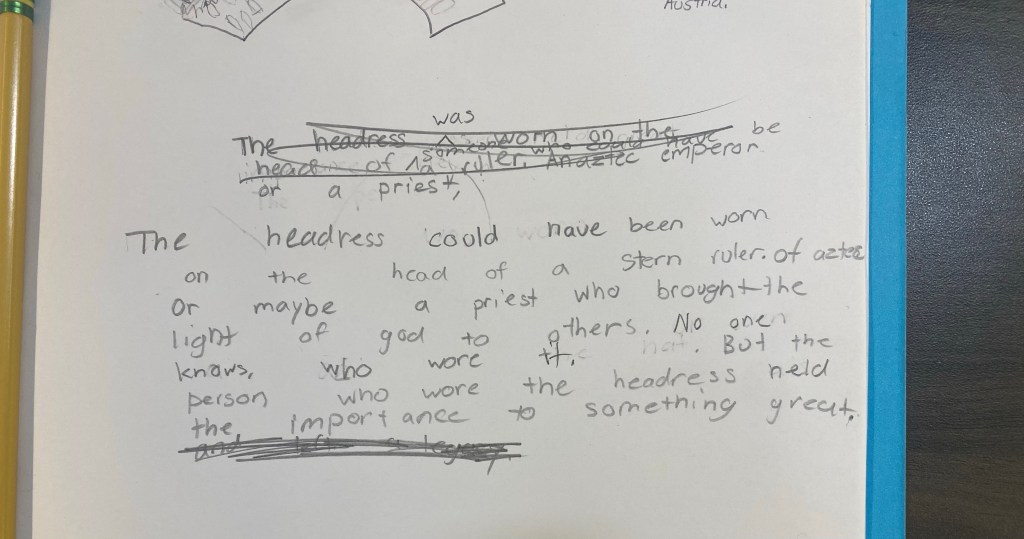 Austria.
was
The headress worn on the be
head of a ruler. An aztec emperor
or a priest,
The headress could have been worn
on the head of a stern ruler. of aztec
Or maybe a priest who brought the
light of god to others. No one
knows, who wore it. But the
person who wore the headress held
the importance to something great.
and left a legacy.